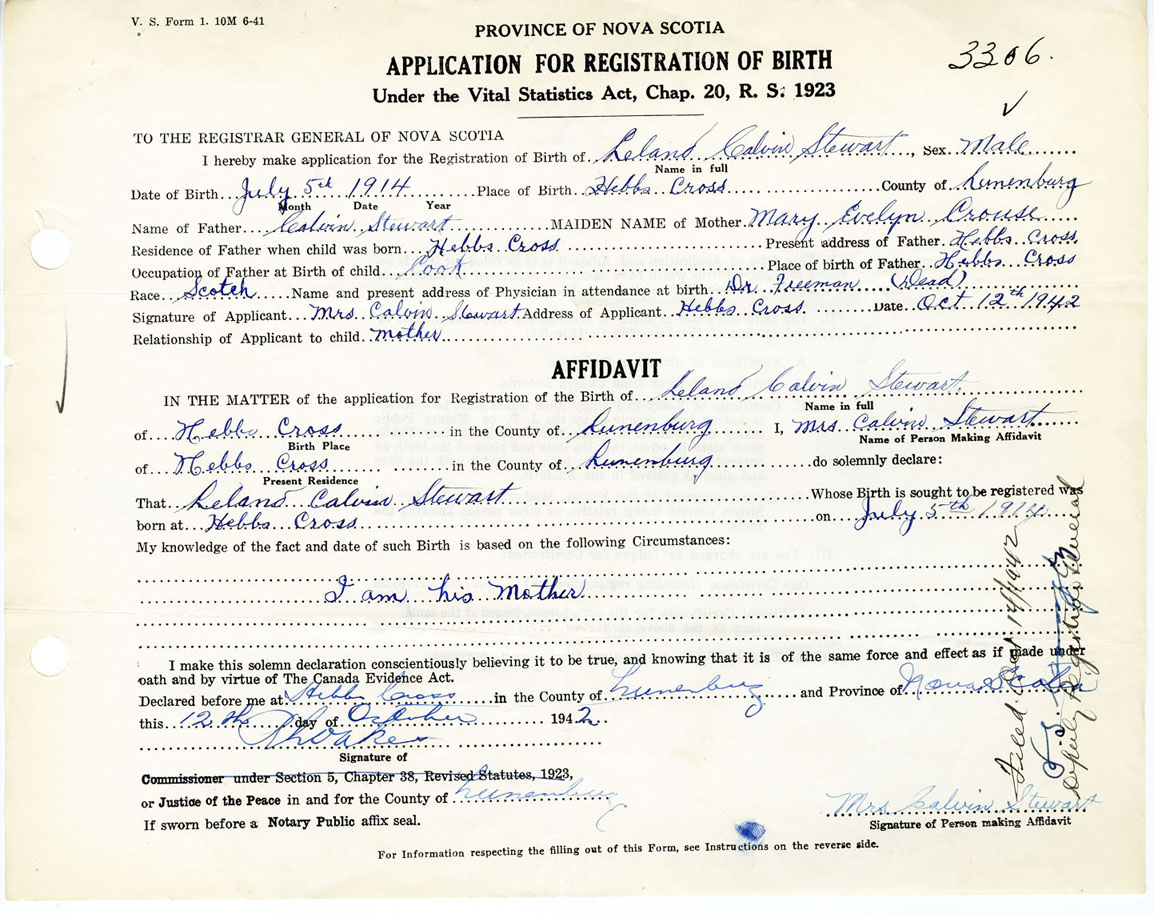 V. S. Form 1. 10M 6-41
PROVINCE OF NOVA SCOTIA
APPLICATION FOR REGISTRATION OF BIRTH
3306.
Under the Vital Statistics Act, Chap. 20, R. S. 1923
TO THE REGISTRAR GENERAL OF NOVA SCOTIA
I hereby make application for the Registration of Birth of Leland Calvin Stewart, Sex Male
Name in full
Date of Birth July 5th 1914 Place of Birth Hebbs Cross County of Lunenburg
Month Date Year
Name of Father Calvin Stewart MAIDEN NAME of Mother Mary Evelyn Crouse
Residence of Father when child was born Hebbs Cross Present address of Father Hebbs Cross
Occupation of Father at Birth of child Cook Place of birth of Father Hebbs Cross
Race Scotch Name and present address of Physician in attendance at birth Dr. Freeman (Dead)
Signature of Applicant Mrs. Calvin Stewart Address of Applicant Hebbs Cross Date Oct 12th 1942
Relationship of Applicant to child Mother
AFFIDAVIT
IN THE MATTER of the application for Registration of the Birth of Leland Calvin Stewart
Name in full
of Hebbs Cross in the County of Lunenburg I, Mrs Calvin Stewart
Birth Place Name of Person Making Affidavit
of Hebbs Cross in the County of Lunenburg do solemnly declare:
Present Residence
That Leland Calvin Stewart Whose Birth is sought to be registered was
born at Hebbs Cross on July 5th 1914
My knowledge of the fact and date of such Birth is based on the following Circumstances:
I am his Mother
I make this solemn declaration conscientiously believing it to be true, and knowing that it is of the same force and effect as if made under
oath and by virtue of The Canada Evidence Act.
Declared before me at Hebbs Cross in the County of Lunenburg and Province of Nova Scotia
this 12th day of October 1942
Signature of
Commissioner under Section 5, Chapter 38, Revised Statutes, 1923,
or Justice of the Peace in and for the County of Lunenburg
If sworn before a Notary Public affix seal.
Mrs Calvin Stewart
Signature of Person making Affidavit
For Information respecting the filling out of this Form, see Instructions on the reverse side.
Filed Oct 14/1942
Deputy Registrar General